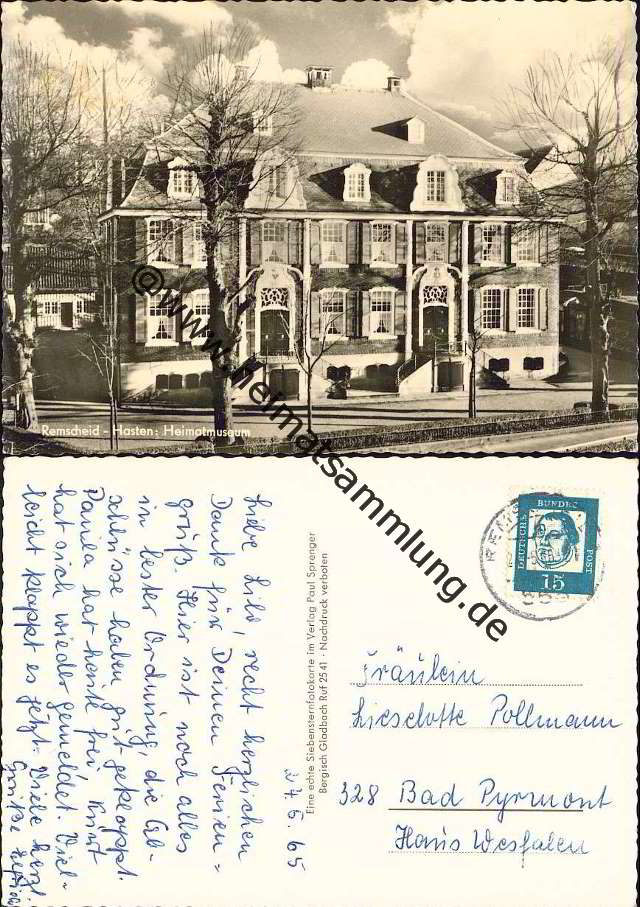 Remscheid - Hasten: Heimatmuseum
©www.heimatsammlung.de
27.5.65
Liebe Lilo, recht herzlichen
Dank für Deinen Ferien=
gruß. Hier ist noch alles
in bester Ordnung, die Ab-
schlüsse haben gut geklappt.
Danila hat heute frei, Knut
hat sich wieder gemeldet. Viel-
leicht klappt es jetzt. Viele herzl.
Grüße
Eine echte Siebensternfotokarte im Verlag Paul Sprenger
Bergisch Gladbach Ruf 2541 · Nachdruck verboten
DEUTSCHE BUNDESPOST
15
REMS
Fräulein
Lieselotte Pollmann
328 Bad Pyrmont
Haus Westfalen